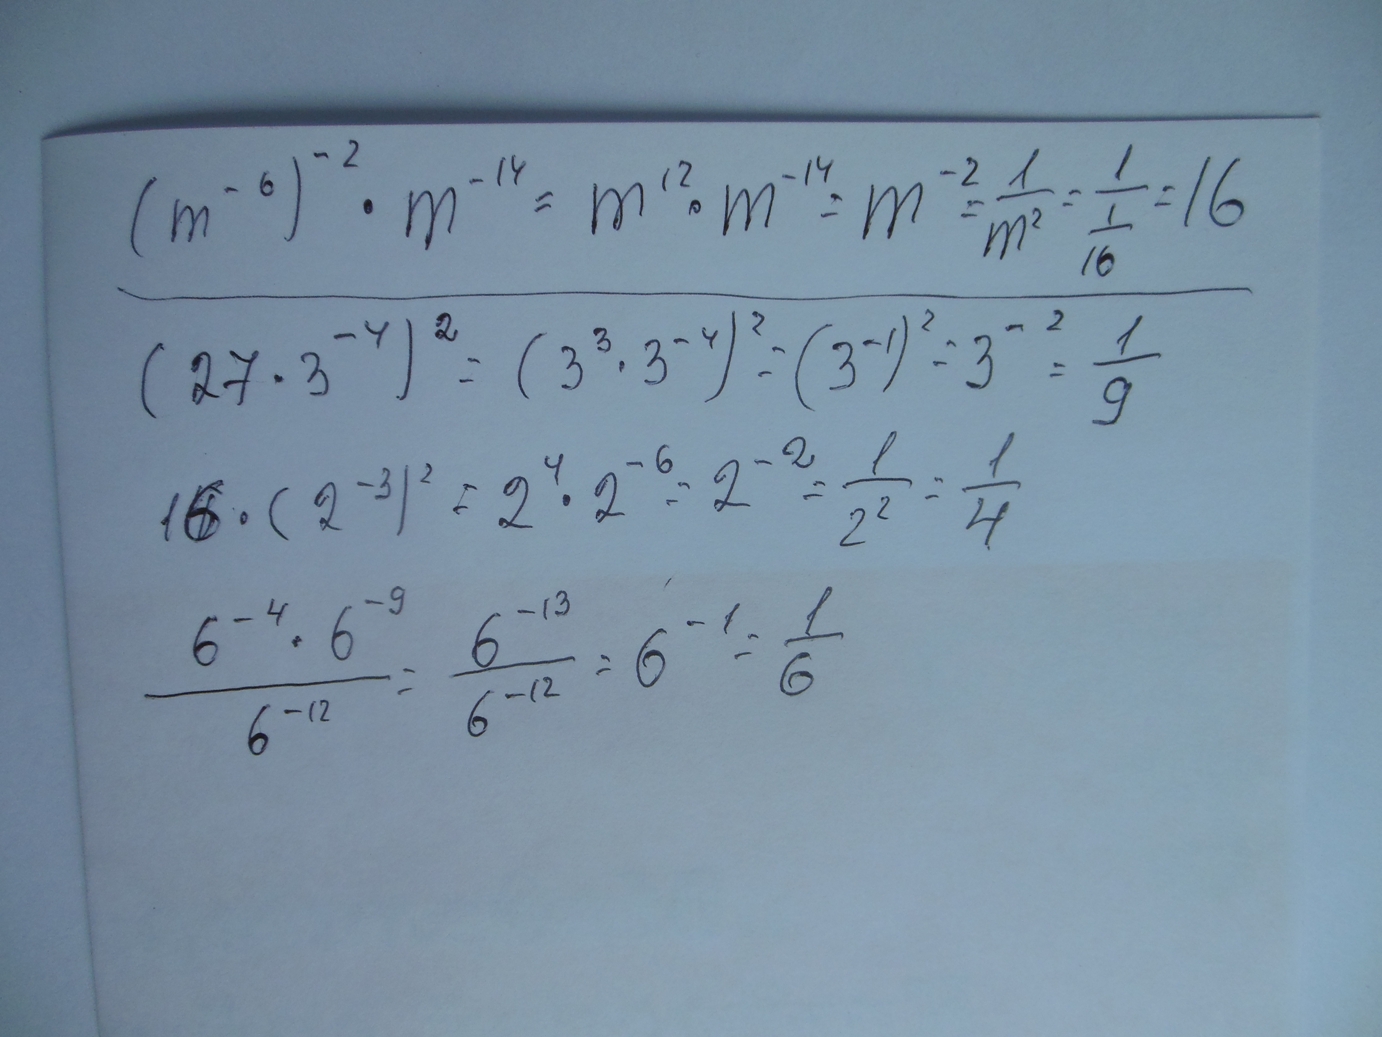 (m⁻⁶)⁻² · m⁻¹⁴ = m¹² · m⁻¹⁴ = m⁻² = 1/m² = 1/(1/16) = 16
(27 · 3⁻⁴)² = (3³ · 3⁻⁴)² = (3⁻¹)² = 3⁻² = 1/9
16 · (2⁻³)² = 2⁴ · 2⁻⁶ = 2⁻² = 1/2² = 1/4
(6⁻⁴ · 6⁻⁹)/6⁻¹² = 6⁻¹³/6⁻¹² = 6⁻¹ = 1/6